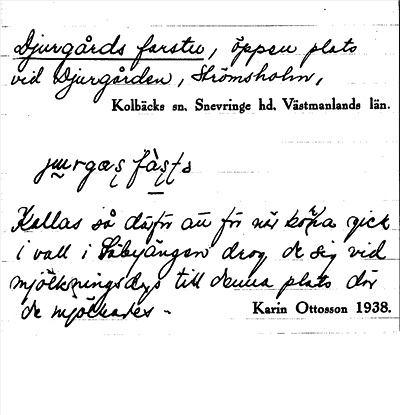 Djurgårds farstu, öppen plats
vid Djurgården, Strömsholm,
Kolbäcks sn. Snevringe hd. Västmanlands län.
Kallas så därför att för när korna gick
i vall i Säbyängen drog de sig vid
mjölkningsdags till denna plats där
de mjölkades -
Karin Ottosson 1938.